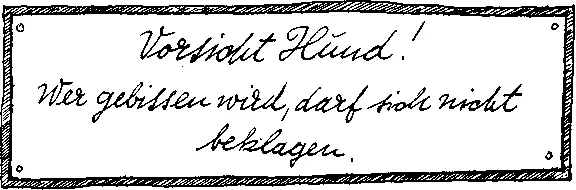 Vorsicht Hund!
Wer gebissen wird, darf sich nicht
beklagen.